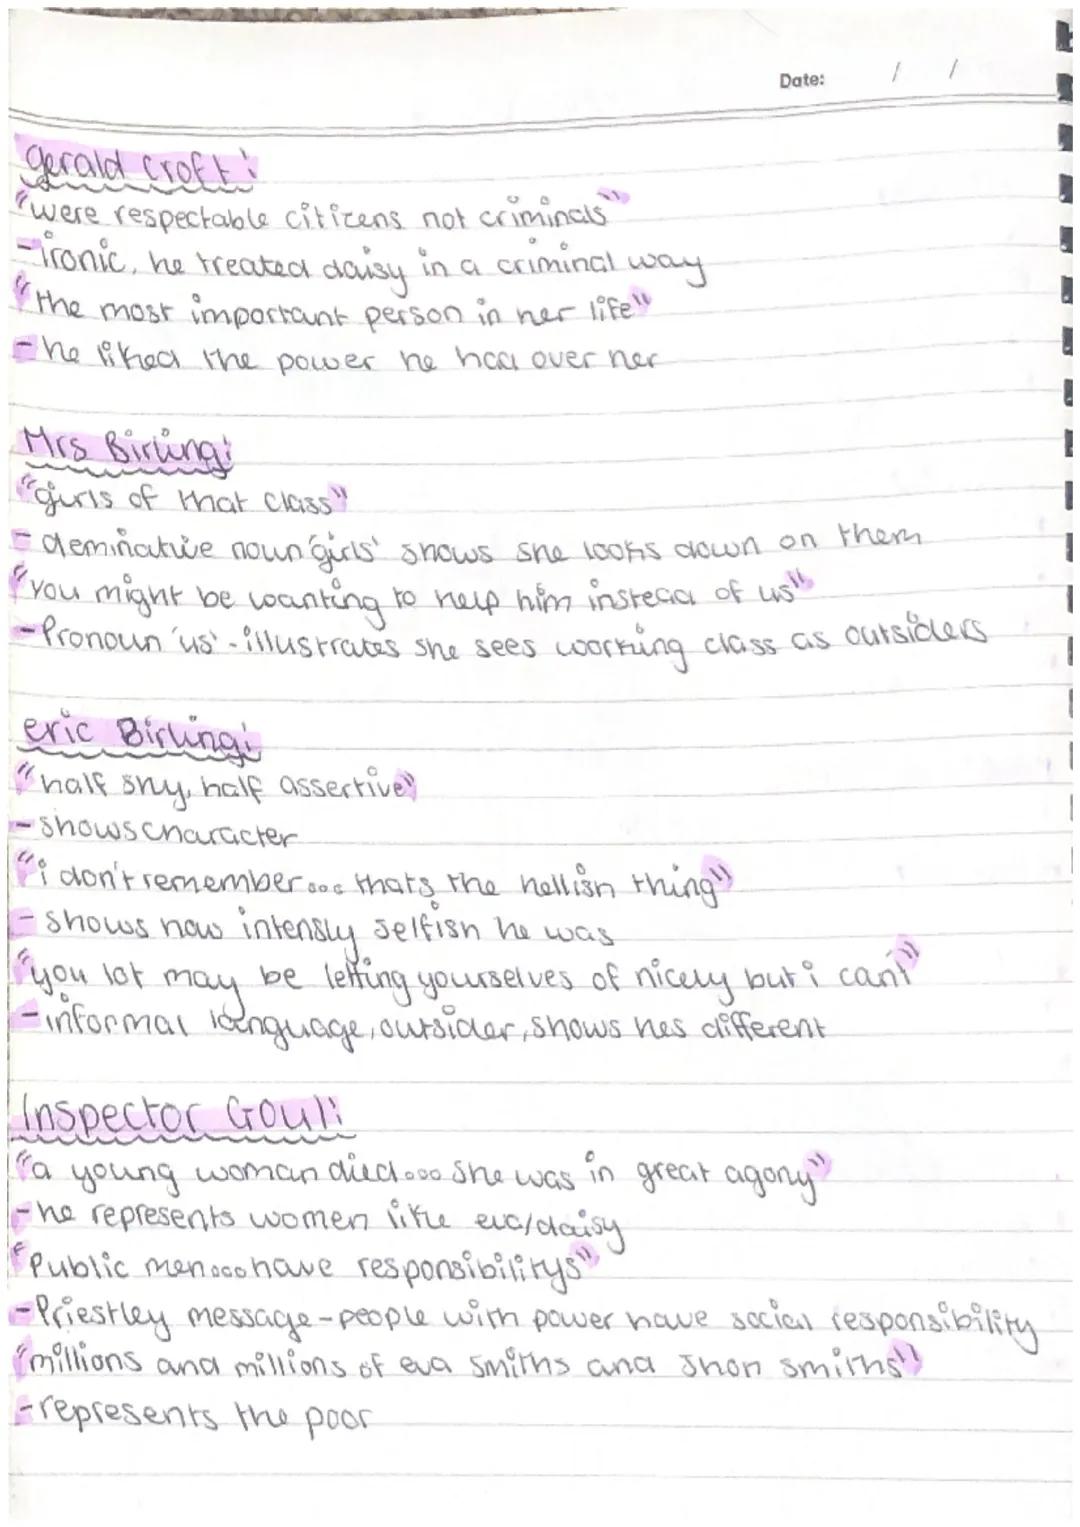 Date: / /
gerald croft:
"were respectable citizens not criminals"
-ironic, he treated daisy in a criminal way
"the most important person in her life"
-he liked the power he had over her
Mrs Birling:
"girls of that class"
- deminative noun 'girls' shows she looks down on them
"you might be wanting to help him instead of us"
-Pronoun 'us' - illustrates she sees working class as outsiders
eric Birling:
"half shy, half assertive"
-shows character
"i don't remember... thats the hellish thing"
- shows how intensly selfish he was
"you lot may be letting yourselves of nicely but i cant"
-informal language, outsider, shows hes different
Inspector Goul:
"a young woman died... she was in great agony"
-he represents women like eva/daisy
"Public men...have responsibilitys"
-Priestley message-people with power have social responsibility
"millions and millions of eva smiths and Jhon smiths"
-represents the poor